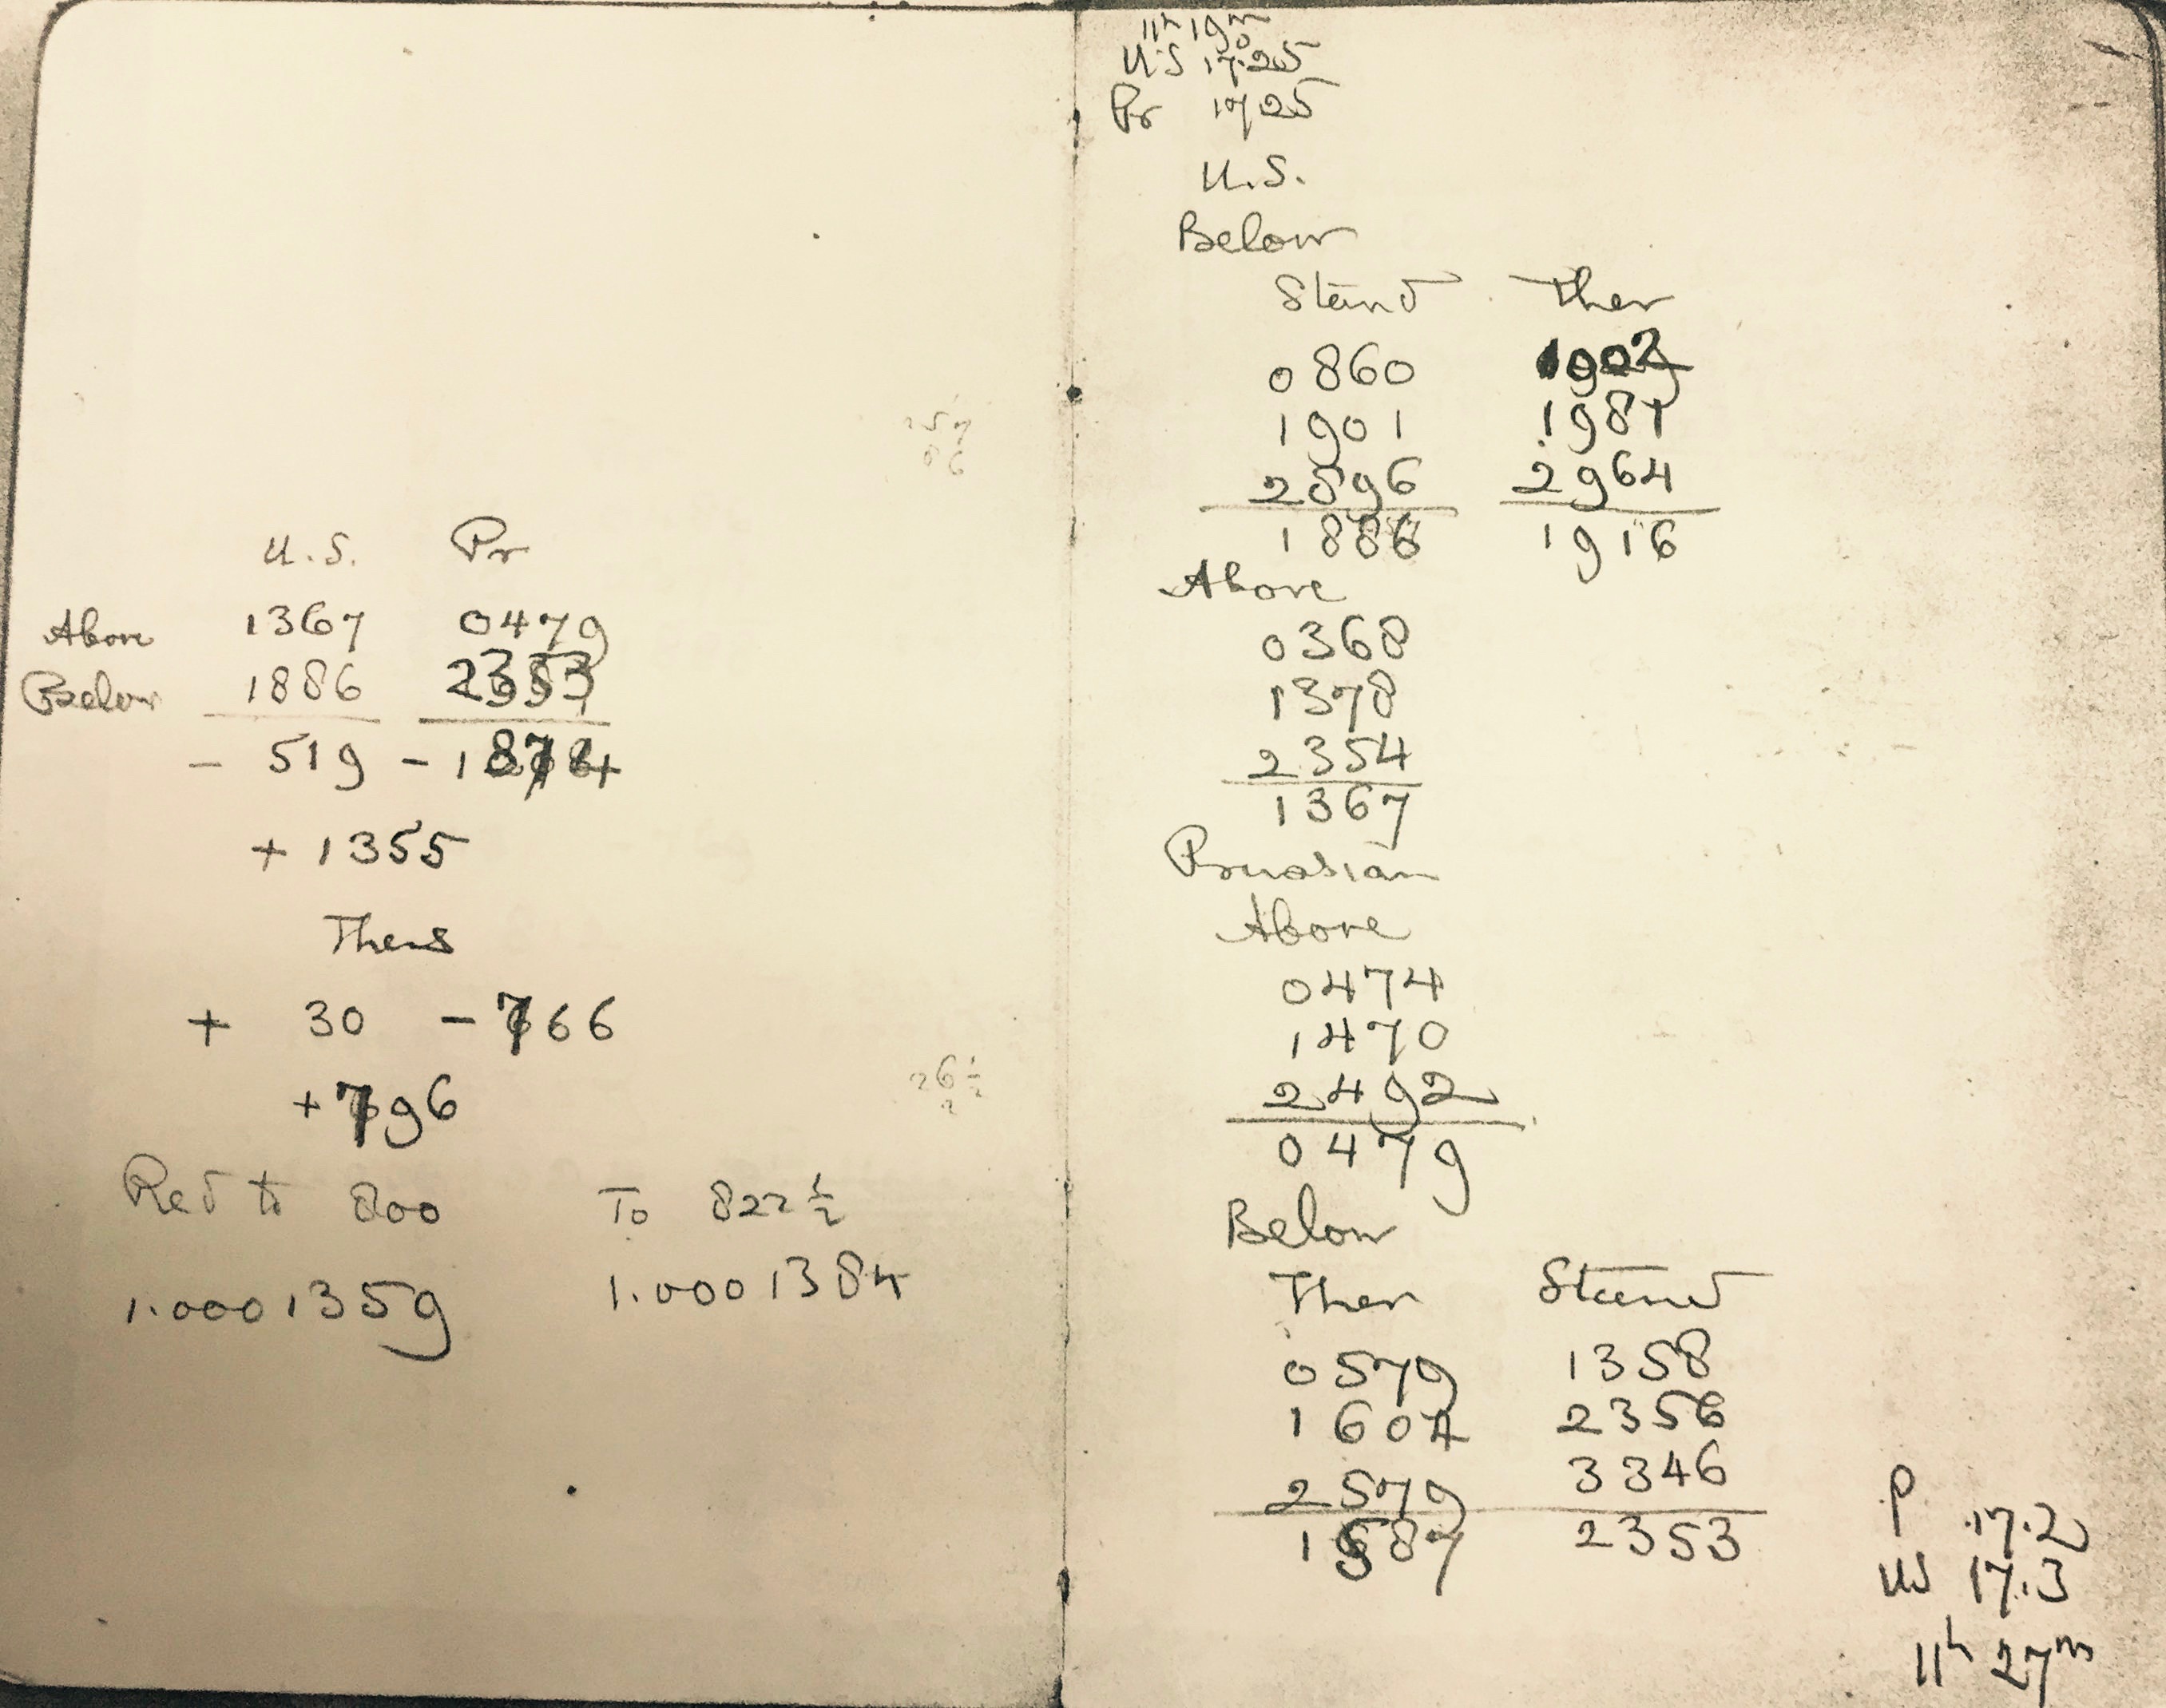 U.S. Pr
Above 1367 0479
Below 1886 2353
- 519 - 1874
+ 1355
Thers
+ 30 - 766
+796
Red to 800 To 822 1/2
1.0001359 1.0001384
26 1/2
11h 19m
U.S 17.25
Pr 1725
U.S.
Below
Stand Ther
0860 1902
1901 1981
2896 2964
1886 1916
Above
0368
1378
2354
1367
Prussian
Above
0474
1470
2492
0479
Below
Ther Stand
0579 1358
1604 2356
2579 3346
1587 2353
P 17.2
US 17.3
11h 27m